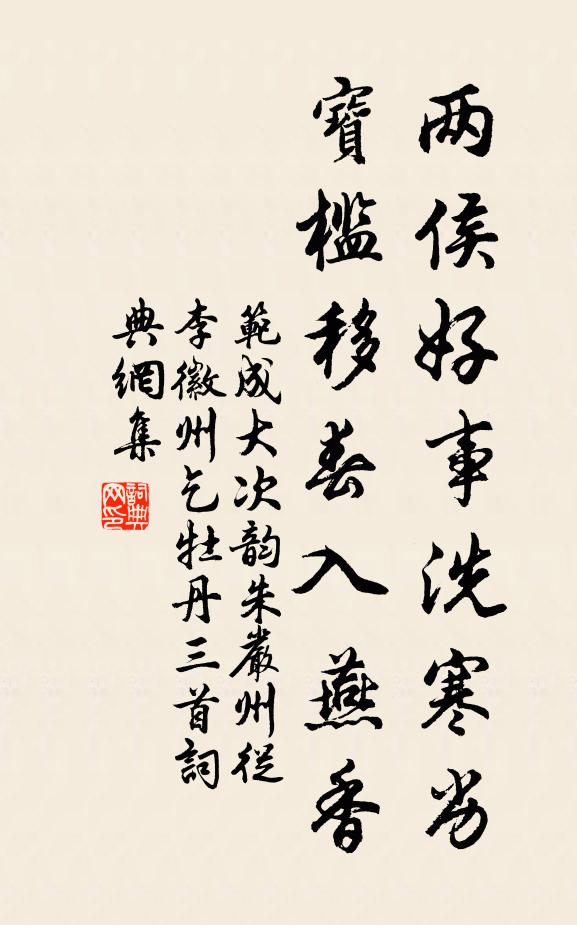 两侯好事洗寒劣
寶檻移春入燕香
範成大次韵朱嚴州從
李徽州乞牡丹三首詞
典網集
詞典網印